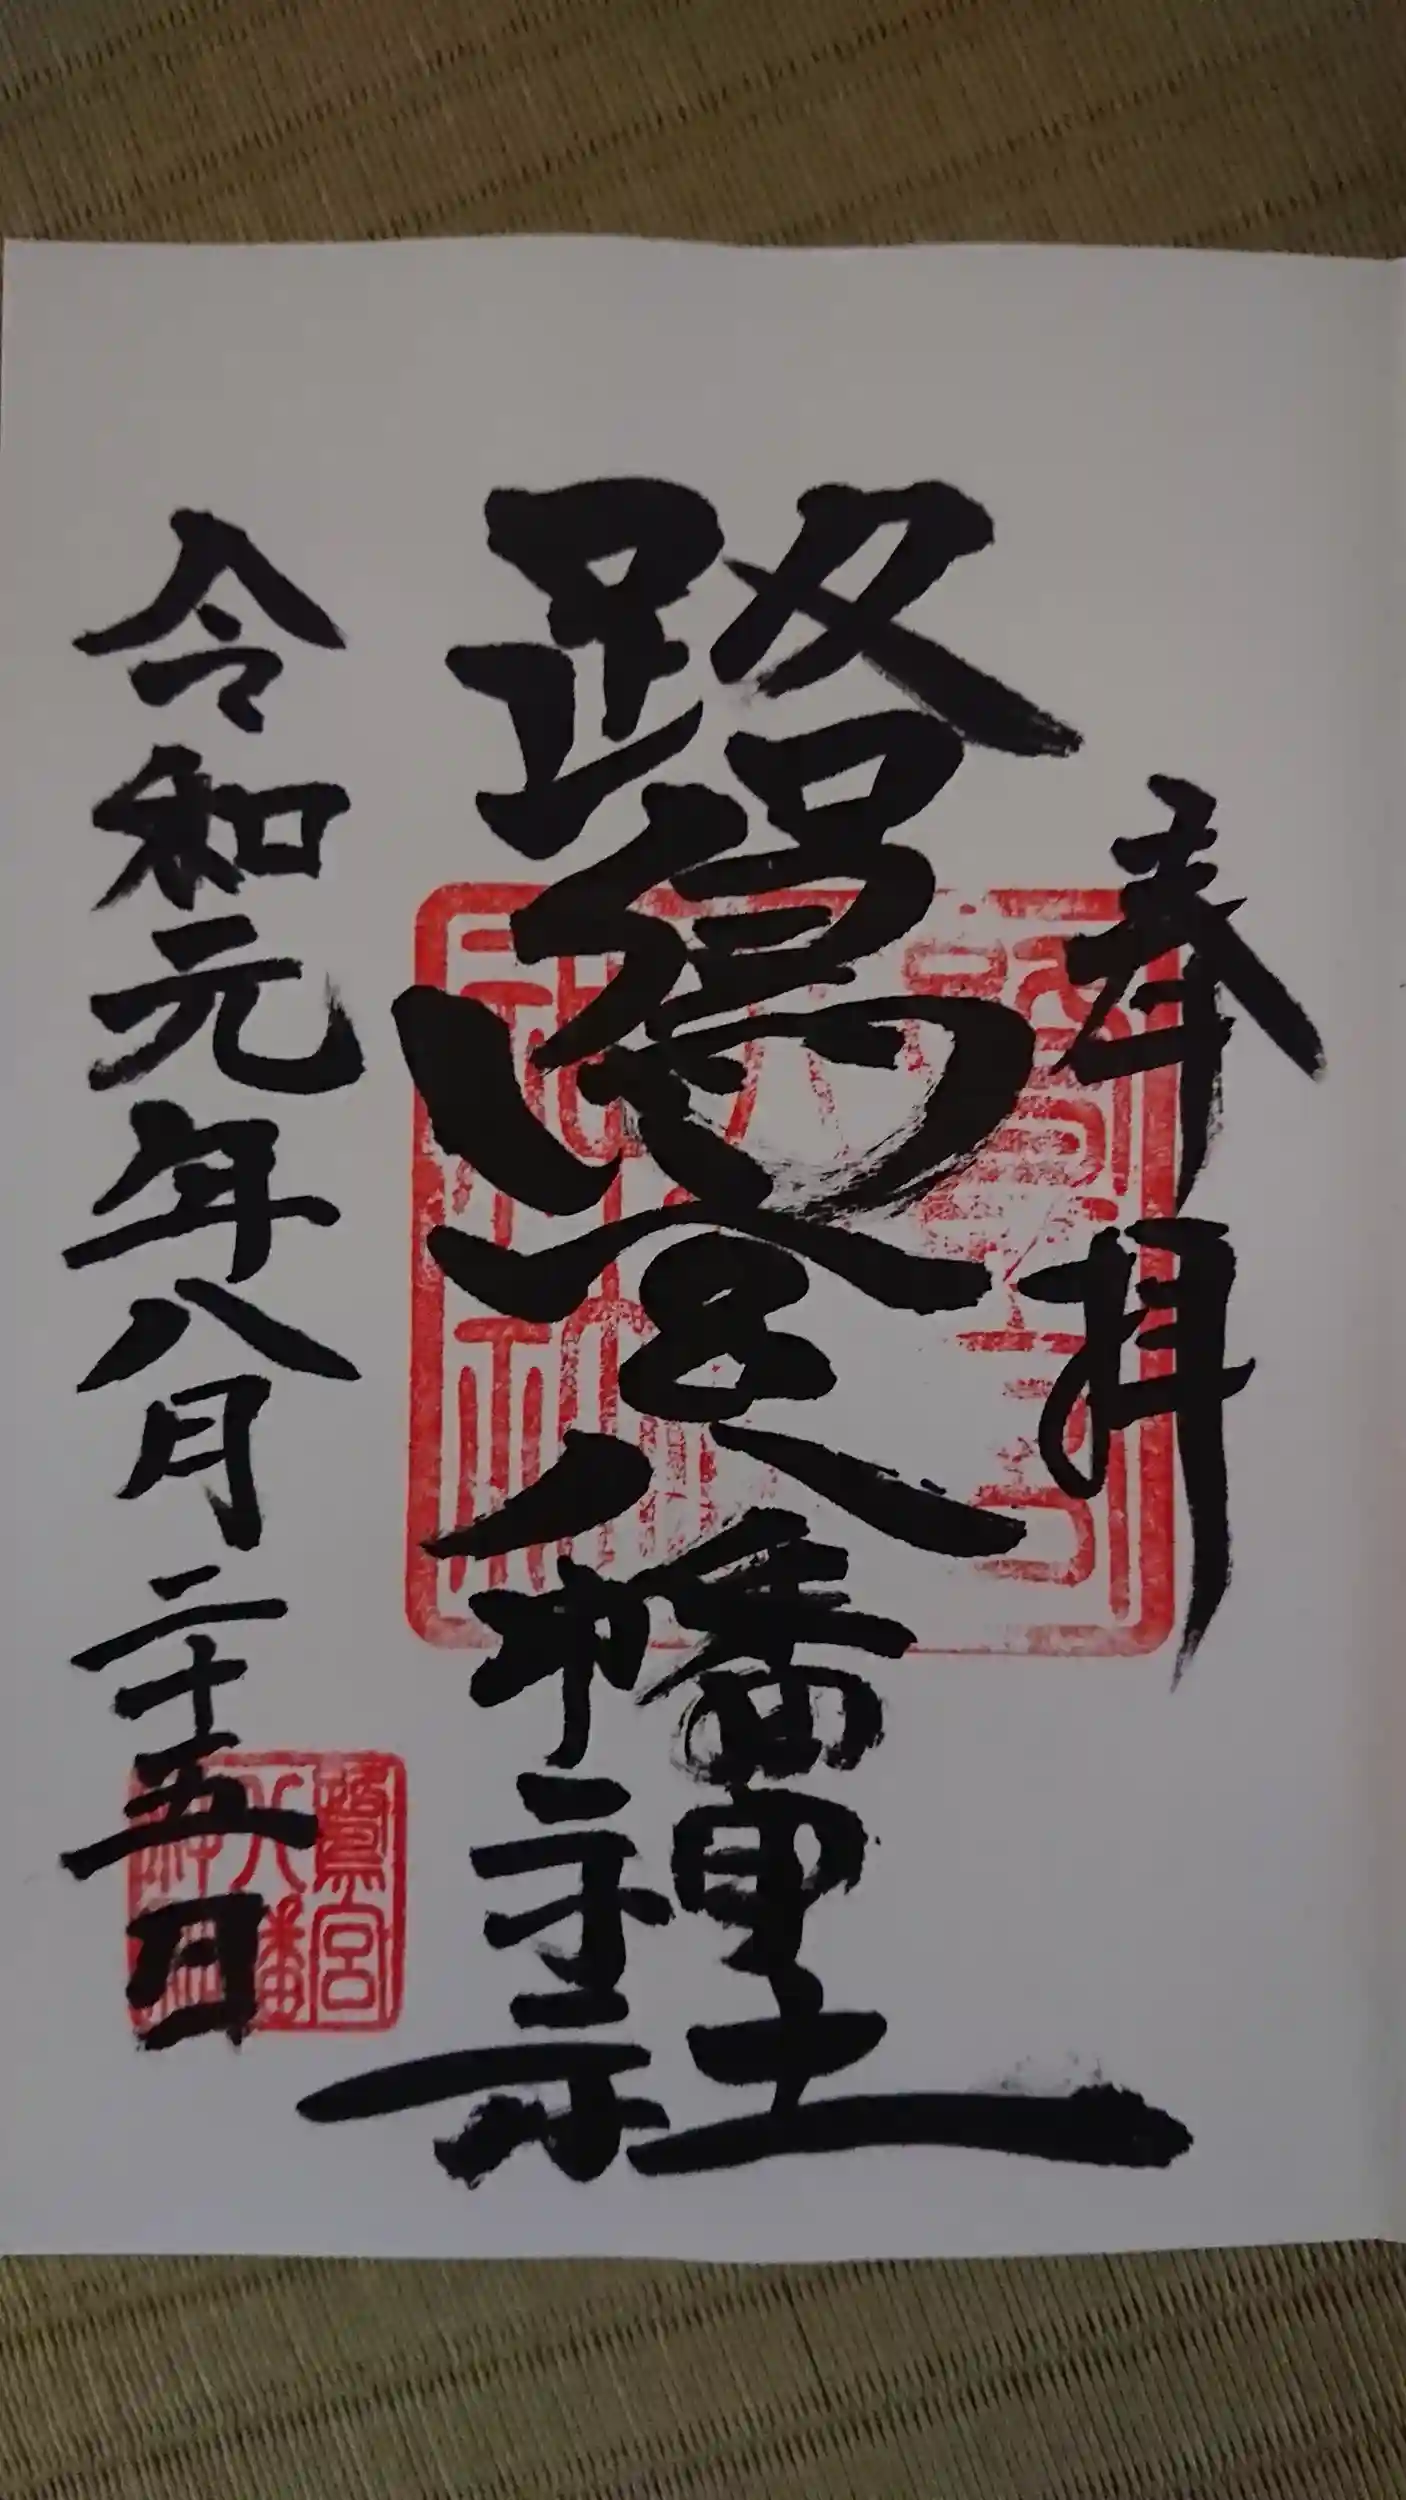 奉拝
鷺宮八幡神社
令和元年八月二十五日
鷺宮
八幡
神社